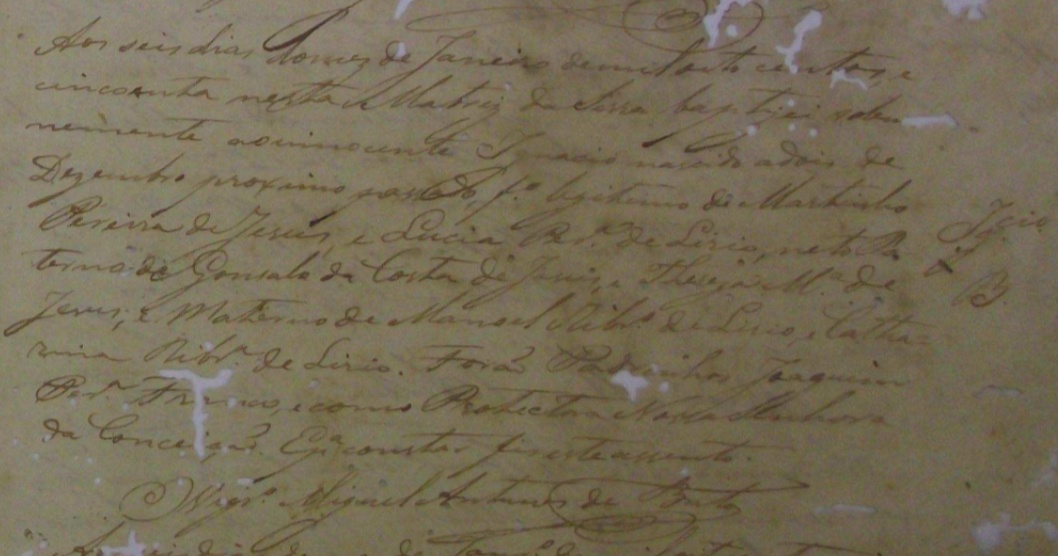 Aos seis dias do mez de Janeiro de mil oito centos, e
cincoenta nesta Matriz da Serra baptizei solem
nemente ao innocente Ignacio nascido a dois de
Dezembro proximo passado, f.º legitimo de Martinho
Pereira de Jesus, e Lucia Rib.ª de Lirio, neto Pa
terno de Gonsalo da Costa de Jesus, e Thereza M.ª de
Jesus; e Materno de Manoel Ribr.º de Lirio, e Catha
rina Ribr.ª de Lirio. Forão Padrinhos Joaquim
Per.ª Franco, e como Protectora Nossa Senhora
da Conceição. E p.ª constar fiz este assento.
O Vigr.º Miguel Antunes de Brito
Ig.cio
B.
Aos seis dias do mez de Janr.º de mil oito centos